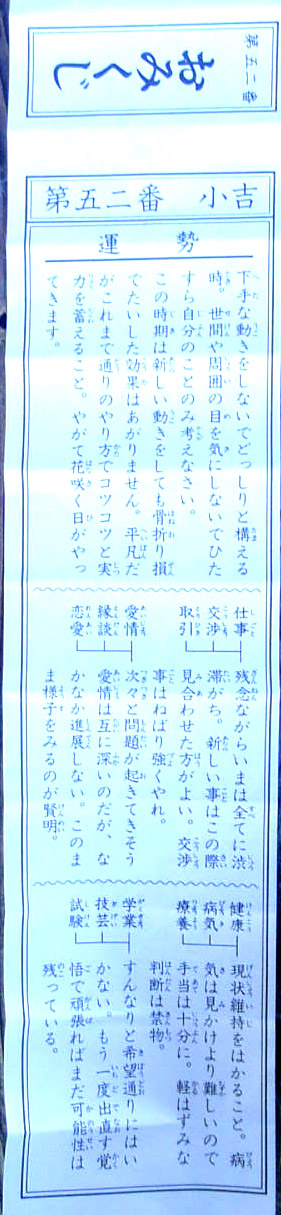 第五二番
おみくじ
第五二番 小吉
運勢
下手な動きをしないでどっしりと構える
時。世間や周囲の目を気にしないでひた
すら自分のことのみ考えなさい。
この時期は新しい動きをしても骨折り損
でたいした効果はあがりません。平凡だ
がこれまで通りのやり方でコツコツと実
力を蓄えること。やがて花咲く日がやっ
てきます。
仕事
交渉
取引
残念ながらいまは全てに渋
滞がち。新しい事はこの際
見合わせた方がよい。交渉
事はねばり強くやれ。
愛情
縁談
恋愛
次々と問題が起きてきそう
愛情は互に深いのだが、な
かなか進展しない。このま
ま様子をみるのが賢明。
健康
病気
療養
現状維持をはかること。病
気は見かけより難しいので
手当は十分に。軽はずみな
判断は禁物。
学業
技芸
試験
すんなりと希望通りにはい
かない。もう一度出直す覚
悟で頑張ればまだ可能性は
残っている。